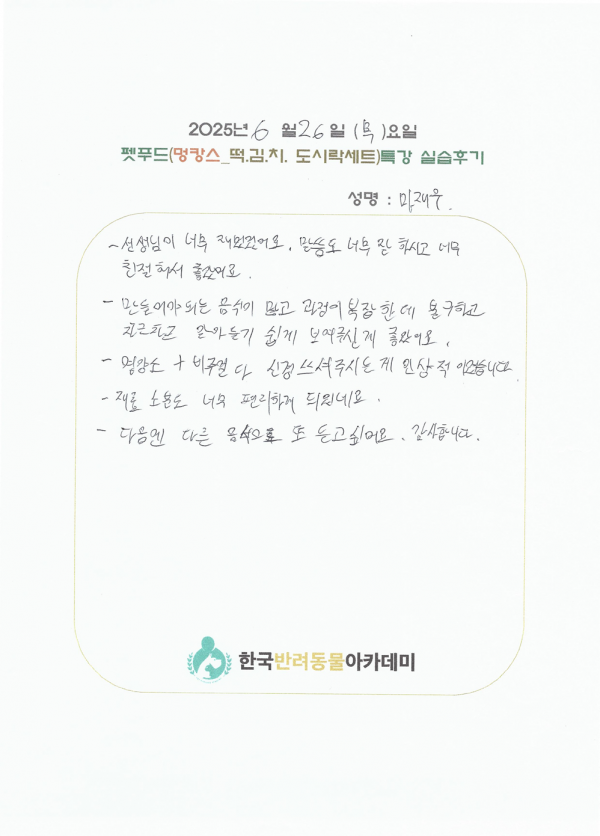 2025년 6 월 26 일 (목)요일
펫푸드(멍캉스_떡.김.치. 도시락세트)특강 실습후기
성명 : 마재우.
~ 선생님이 너무 재밌었어요. 말씀도 너무 잘 하시고 너무
친절하셔서 좋았어요.
- 만들어야 되는 음식이 많고 과정이 복잡한데 불구하고
차근차근 알아듣기 쉽게 보여주신게 좋았어요.
- 영양소 + 비주얼 다 신경쓰셔주시는게 인상적이었습니다
- 재료 소분도 너무 편리하게 되있네요.
- 다음엔 다른 음식으로 또 듣고싶어요. 감사합니다.
한국반려동물아카데미